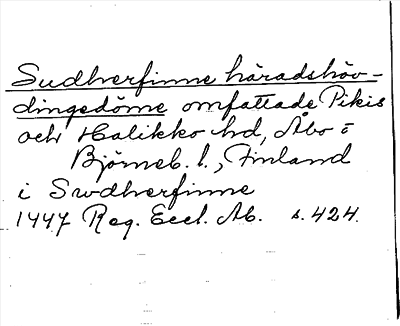 Sudherfinne häradshöv-
dingedöme omfattade Pikis
och Halikko hd, Åbo o
Björneb. l., Finland
i Swdherfinne
1447 Reg. Eccl. Ab. s. 424.